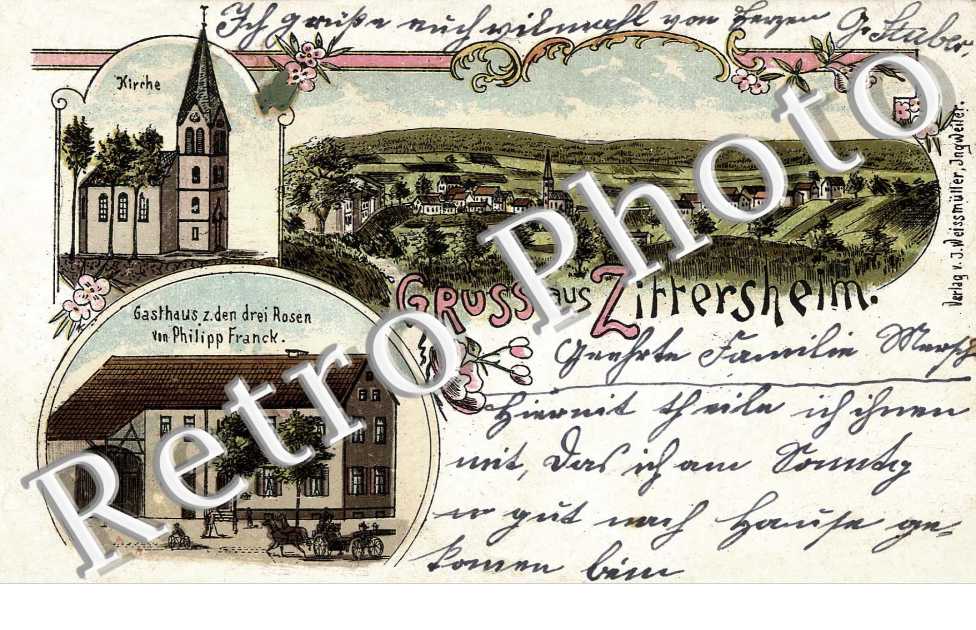 Ich grüße euch vielmahl von Herzen G. Stuber
Kirche
Verlag v. J. Weissmüller, Ingweiler.
GRUSS aus Zittersheim.
Gasthaus z. den drei Rosen
von Philipp Franck.
Geehrte Familie
Hiermit theile ich ihnen
mit, Das ich am Sonntag
gut nach Hause ge-
komen bin
Retro Photo